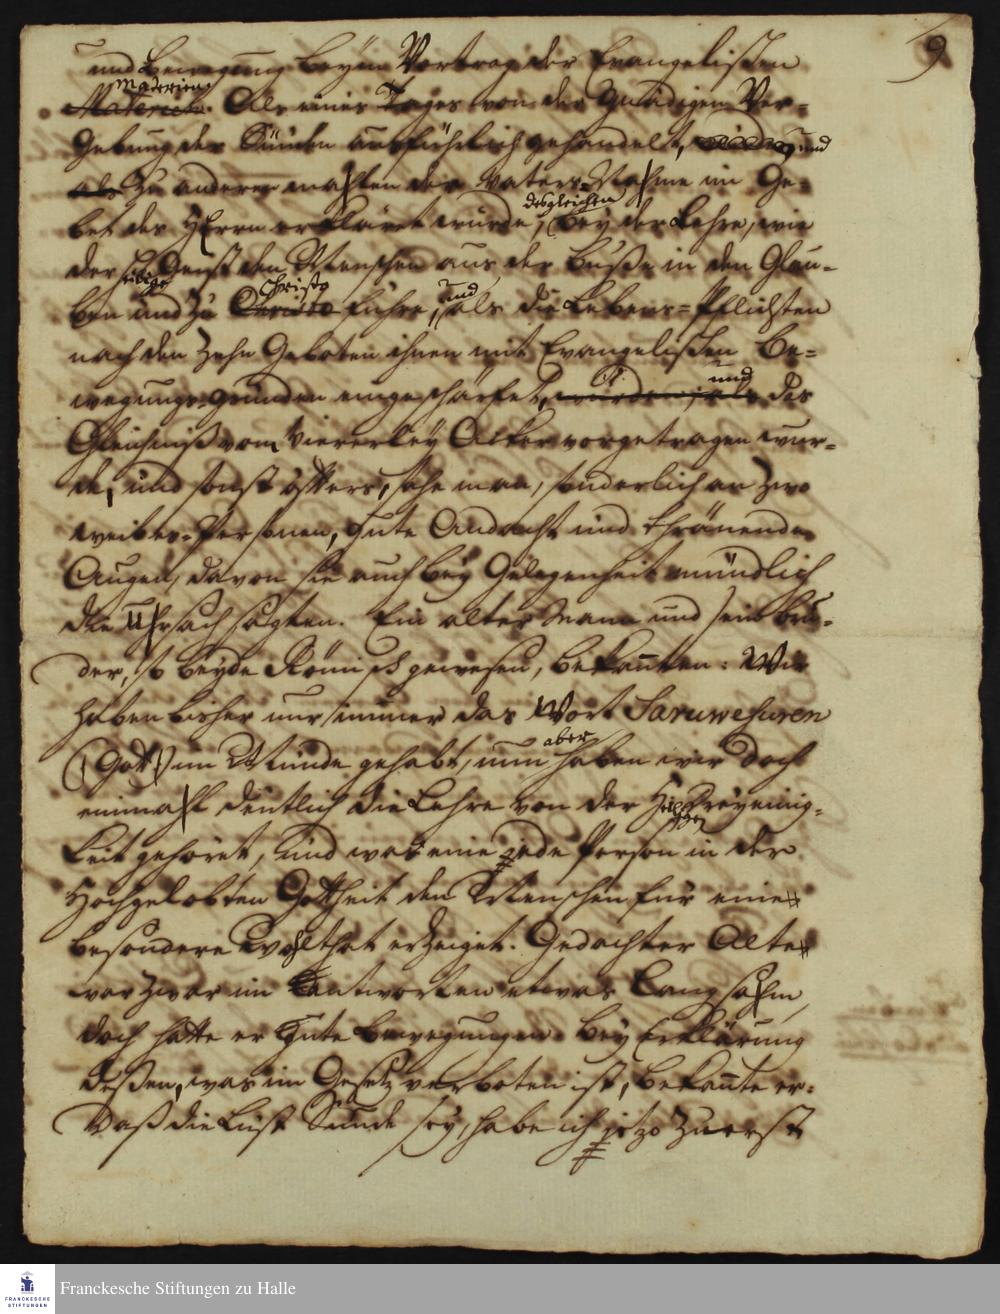 9
und Bewegung beym Vortrag der Evangelischen
Materien
Materien. Als eines Tages von der Gnädigen Ver-
gebung der Sünden ausführlich gehandelt, und
als zu anderen mahlen der Vaters-Nahme im Ge-
bet des HErrn erkläret wurde, desgleichen bey der Lehre, wie
der heilige Geist den Menschen aus der Buße in den Glau-
ben und zu Christo Christo führe, und als die Lebens-Pflichten
nach den Zehn Geboten ihnen mit Evangelischen Be-
wegungs-Gründen eingeschärfet, wurden, als und das
Gleichniß vom viererley Acker vorgetragen wur-
de, und sonst öfters, sahe man, sonderlich an zwo
weibes-Personen, gute Andacht und thränende
Augen, davon sie auch bey Gelegenheit mündlich
die Uhrsach sagten. Ein alter Mann und sein Bru-
der, so beyde Römisch gewesen, bekannten: Wir
haben bisher nur immer das Wort Saruwesuren
(Gott) im Munde gehabt, nun aber haben wir doch
einmahl deutlich die Lehre von der Heiligen Dreyeinig-
keit gehöret, und was eine jede Person in der
Hochgelobten Gottheit den Menschen für eine
besondere Wohlthat erzeiget. Gedachter Alte
war zwar im Antworten etwas langsahm,
doch hatte er gute Bewegungen. Bey Erklärung
deßen, was im Gesetz verboten ist, bekannte er:
Daß die Lust Sünde sey, habe ich jetzo zuerst
FRANCKESCHE
STIFTUNGEN
Franckesche Stiftungen zu Halle